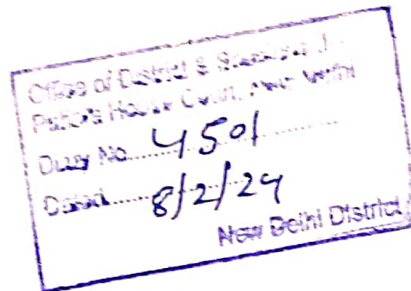 Office of District & Sessions J...
Patiala House Court, New Delhi
Diary No. 4501
Dated 8/2/24
New Delhi District